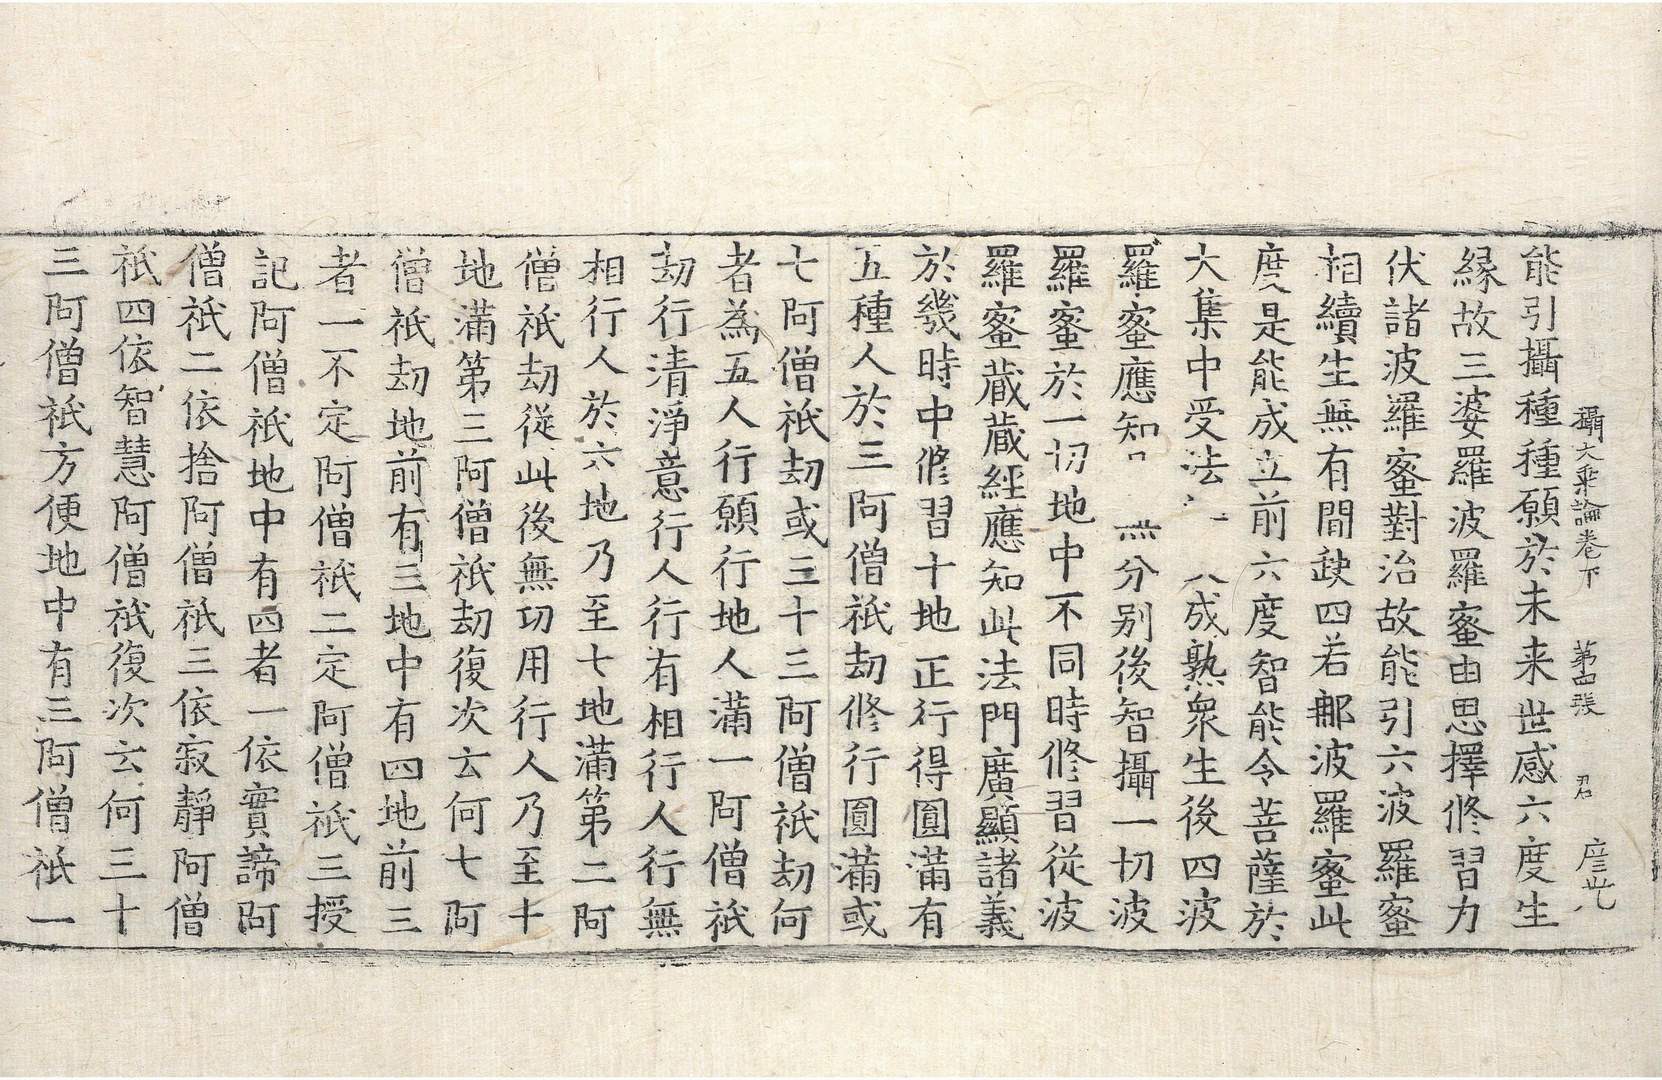 攝大乗論卷下 第四張 君
能引攝種種願於未来世感六度生
縁故三婆羅波羅蜜由思擇修習力
伏諸波羅蜜對治故能引六波羅蜜
相續生無有間𡙇四若那波羅蜜此
度是能成立前六度智能令菩薩於
大集中受法 成熟衆生後四波
羅蜜應知 無分别後智攝一切波
羅蜜於一切地中不同時修習從波
羅蜜蔵蔵經應知此法門廣顯諸義
於幾時中修習十地正行得圓滿有
五種人於三阿僧祇劫修行圓滿或
七阿僧祇劫或三十三阿僧祇劫何
者為五人行願行地人滿一阿僧祇
劫行清淨意行人行有相行人行無
相行人於六地乃至七地滿第二阿
僧祇劫從此後無功用行人乃至十
地滿第三阿僧祇劫復次云何七阿
僧祇劫地前有三地中有四地前三
者一不定阿僧祇二定阿僧祇三授
記阿僧祇地中有四者一依實諦阿
僧祇二依捨阿僧祇三依寂靜阿僧
祇四依智慧阿僧祇復次云何三十
三阿僧祇方便地中有三阿僧祇一